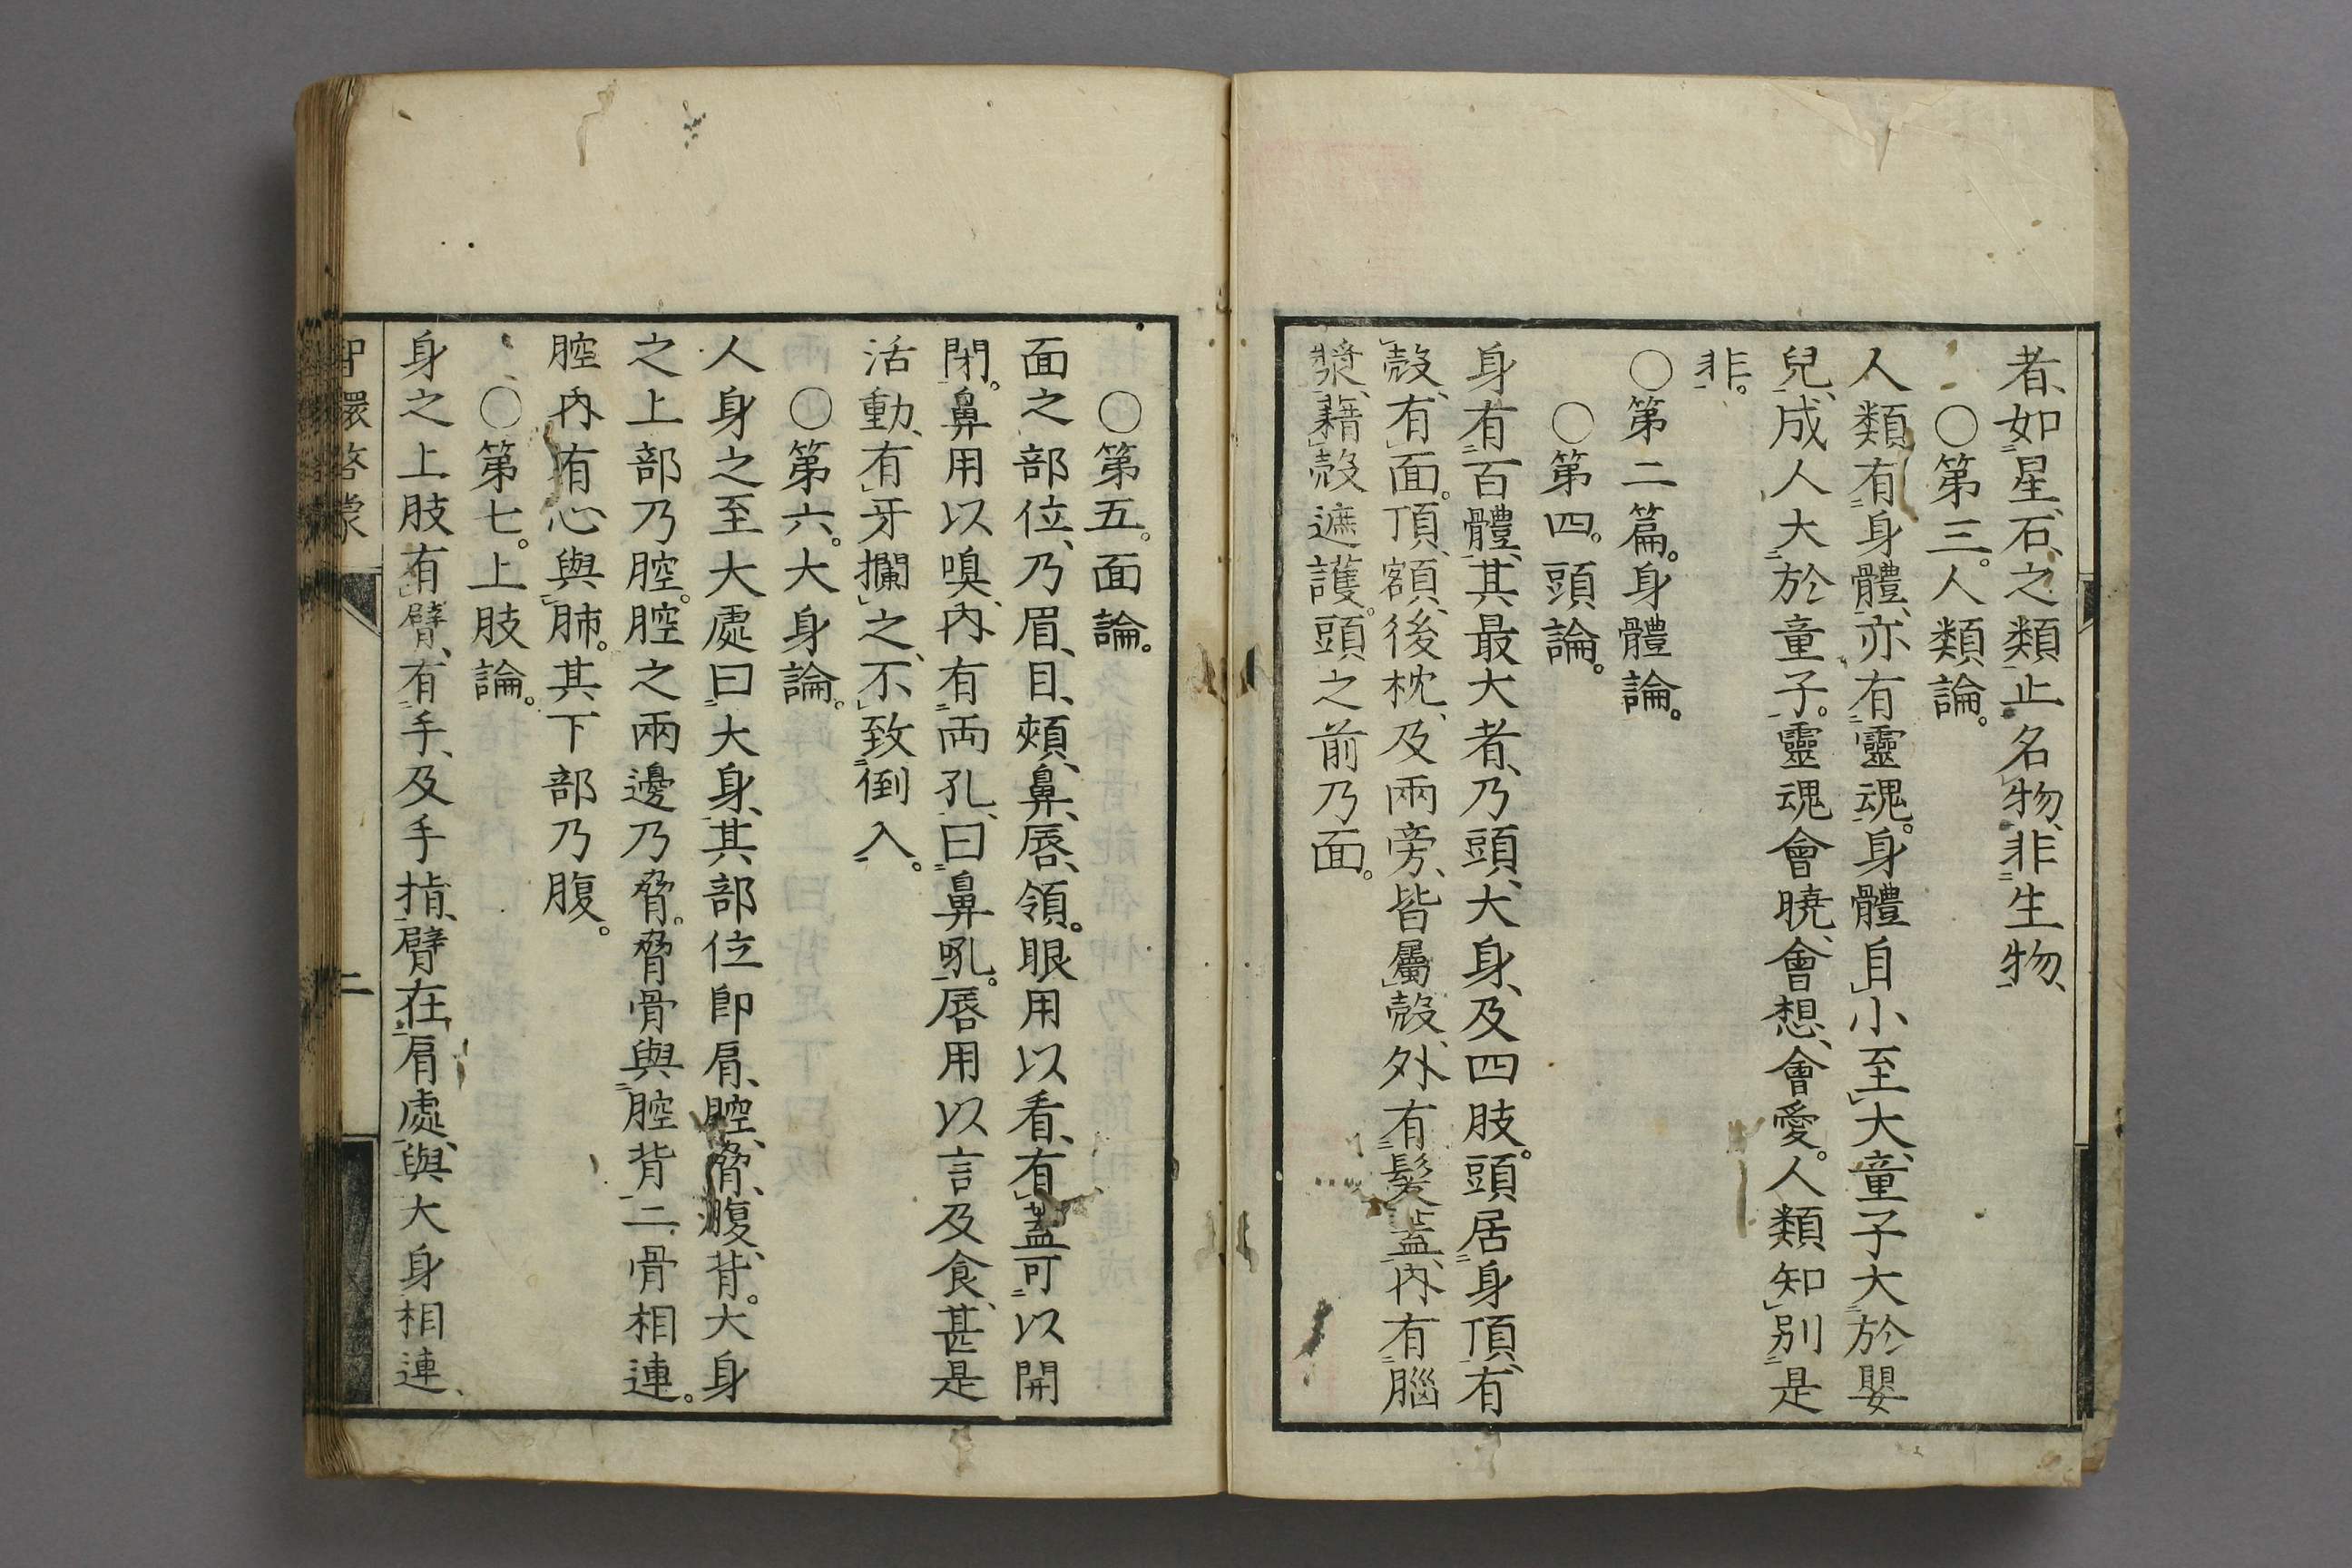 者、如星、石、之類、止名物、非生物、
〇第三。人類論。
人類有身體、亦有靈魂。身體自小至大、童子大於嬰
兒、成人大於童子。靈魂會曉、會想、會愛。人類知別是
非。
〇第二篇。身體論。
〇第四。頭論。
身有百體、其最大者、乃頭、大身、及四肢。頭居身頂、有
殼、有面。頂、額、後枕、及兩旁、皆屬殼、外有髮蓋、內有腦
漿、藉殼遮護。頭之前乃面。
〇第五。面論。
面之部位、乃眉、目、頰、鼻、唇、頷。眼用以看、有蓋可以開
閉。鼻用以嗅、內有両孔、曰鼻吼。唇用以言及食、甚是
活動、有牙攔之、不致倒入。
〇第六。大身論。
人身之至大處曰大身、其部位即肩、腔、脅、腹、背。大身
之上部乃腔。腔之兩邊乃脅。脅骨與腔背二骨相連。
腔內有心與肺。其下部乃腹。
〇第七。上肢論。
身之上肢有臂、有手、及手指、臂在肩處、與大身相連、
智環啓蒙
二